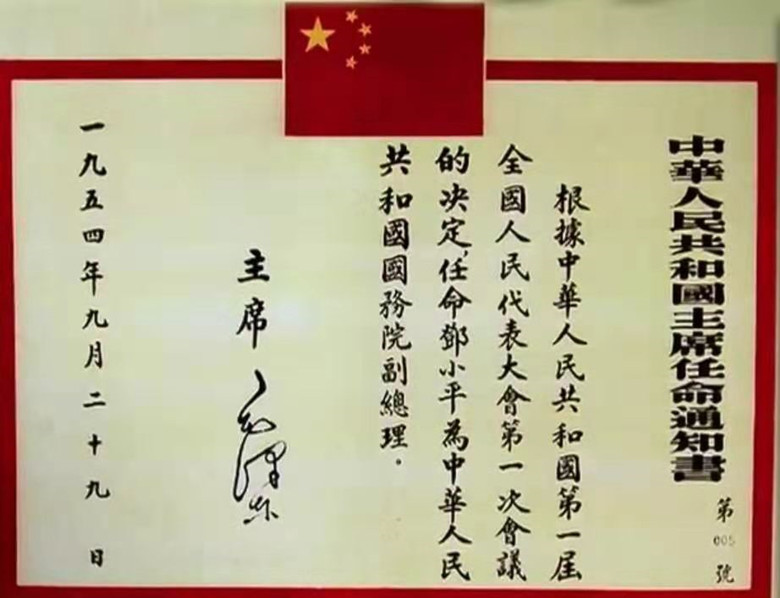 中華人民共和國主席任命通知書
第005號
根據中華人民共和國第一屆
全國人民代表大會第一次會議
的决定，任命鄧小平為中華人民
共和國國務院副總理。
主席 毛澤东
一九五四年九月二十九日